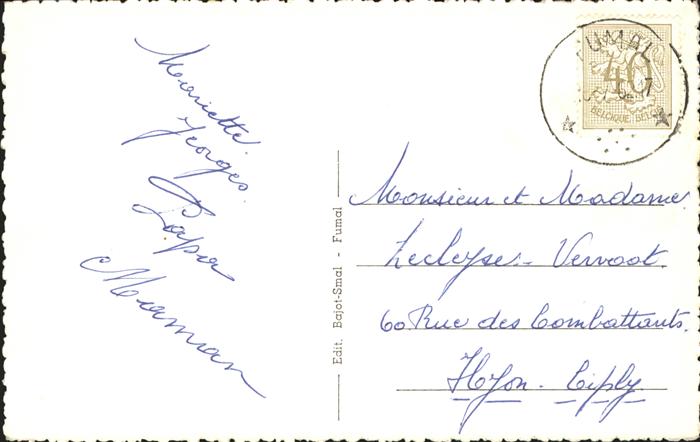 Mariette
Georges
Papa
Maman
Edit. Bajot-Smal - Fumal
FUMAL
40
BELGIQUE BELGIË
Monsieur et Madame
Lecleyse - Vervoot.
60 Rue des Combattants.
Hyon - Ciply